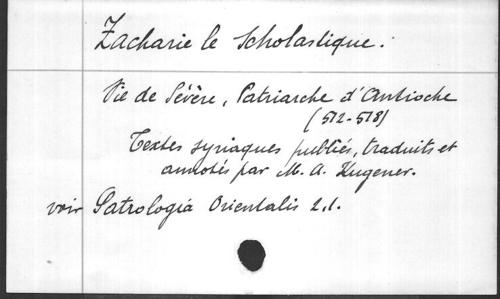 Zacharie le Scholastique.
Vie de Sévère, Patriarche d'Antioche
(512-518)
Textes syriaques publiés, traduits et
annotés par M. A. Kugener.
voir Patrologia Orientalis 2,1.